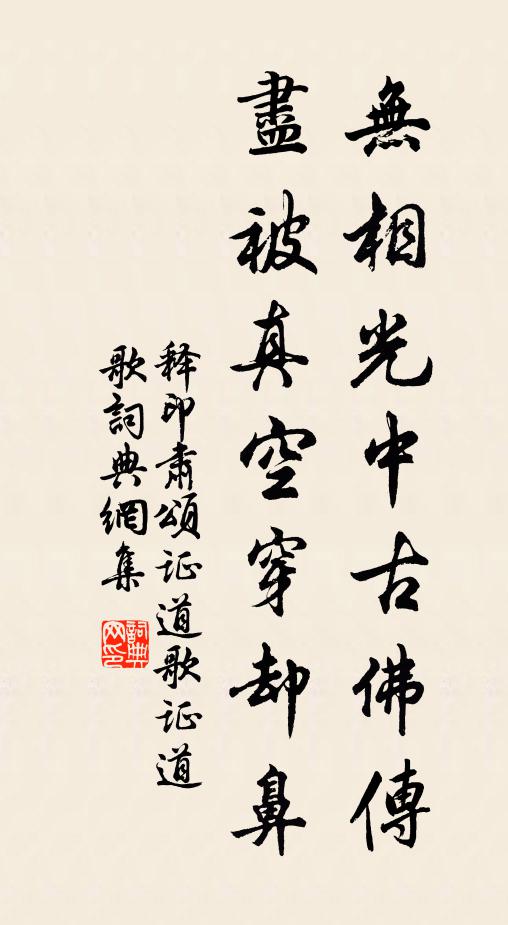 無相光中古佛傳
盡被真空穿却鼻
释印肅頌证道歌证道
歌詞典網集
詞典网印